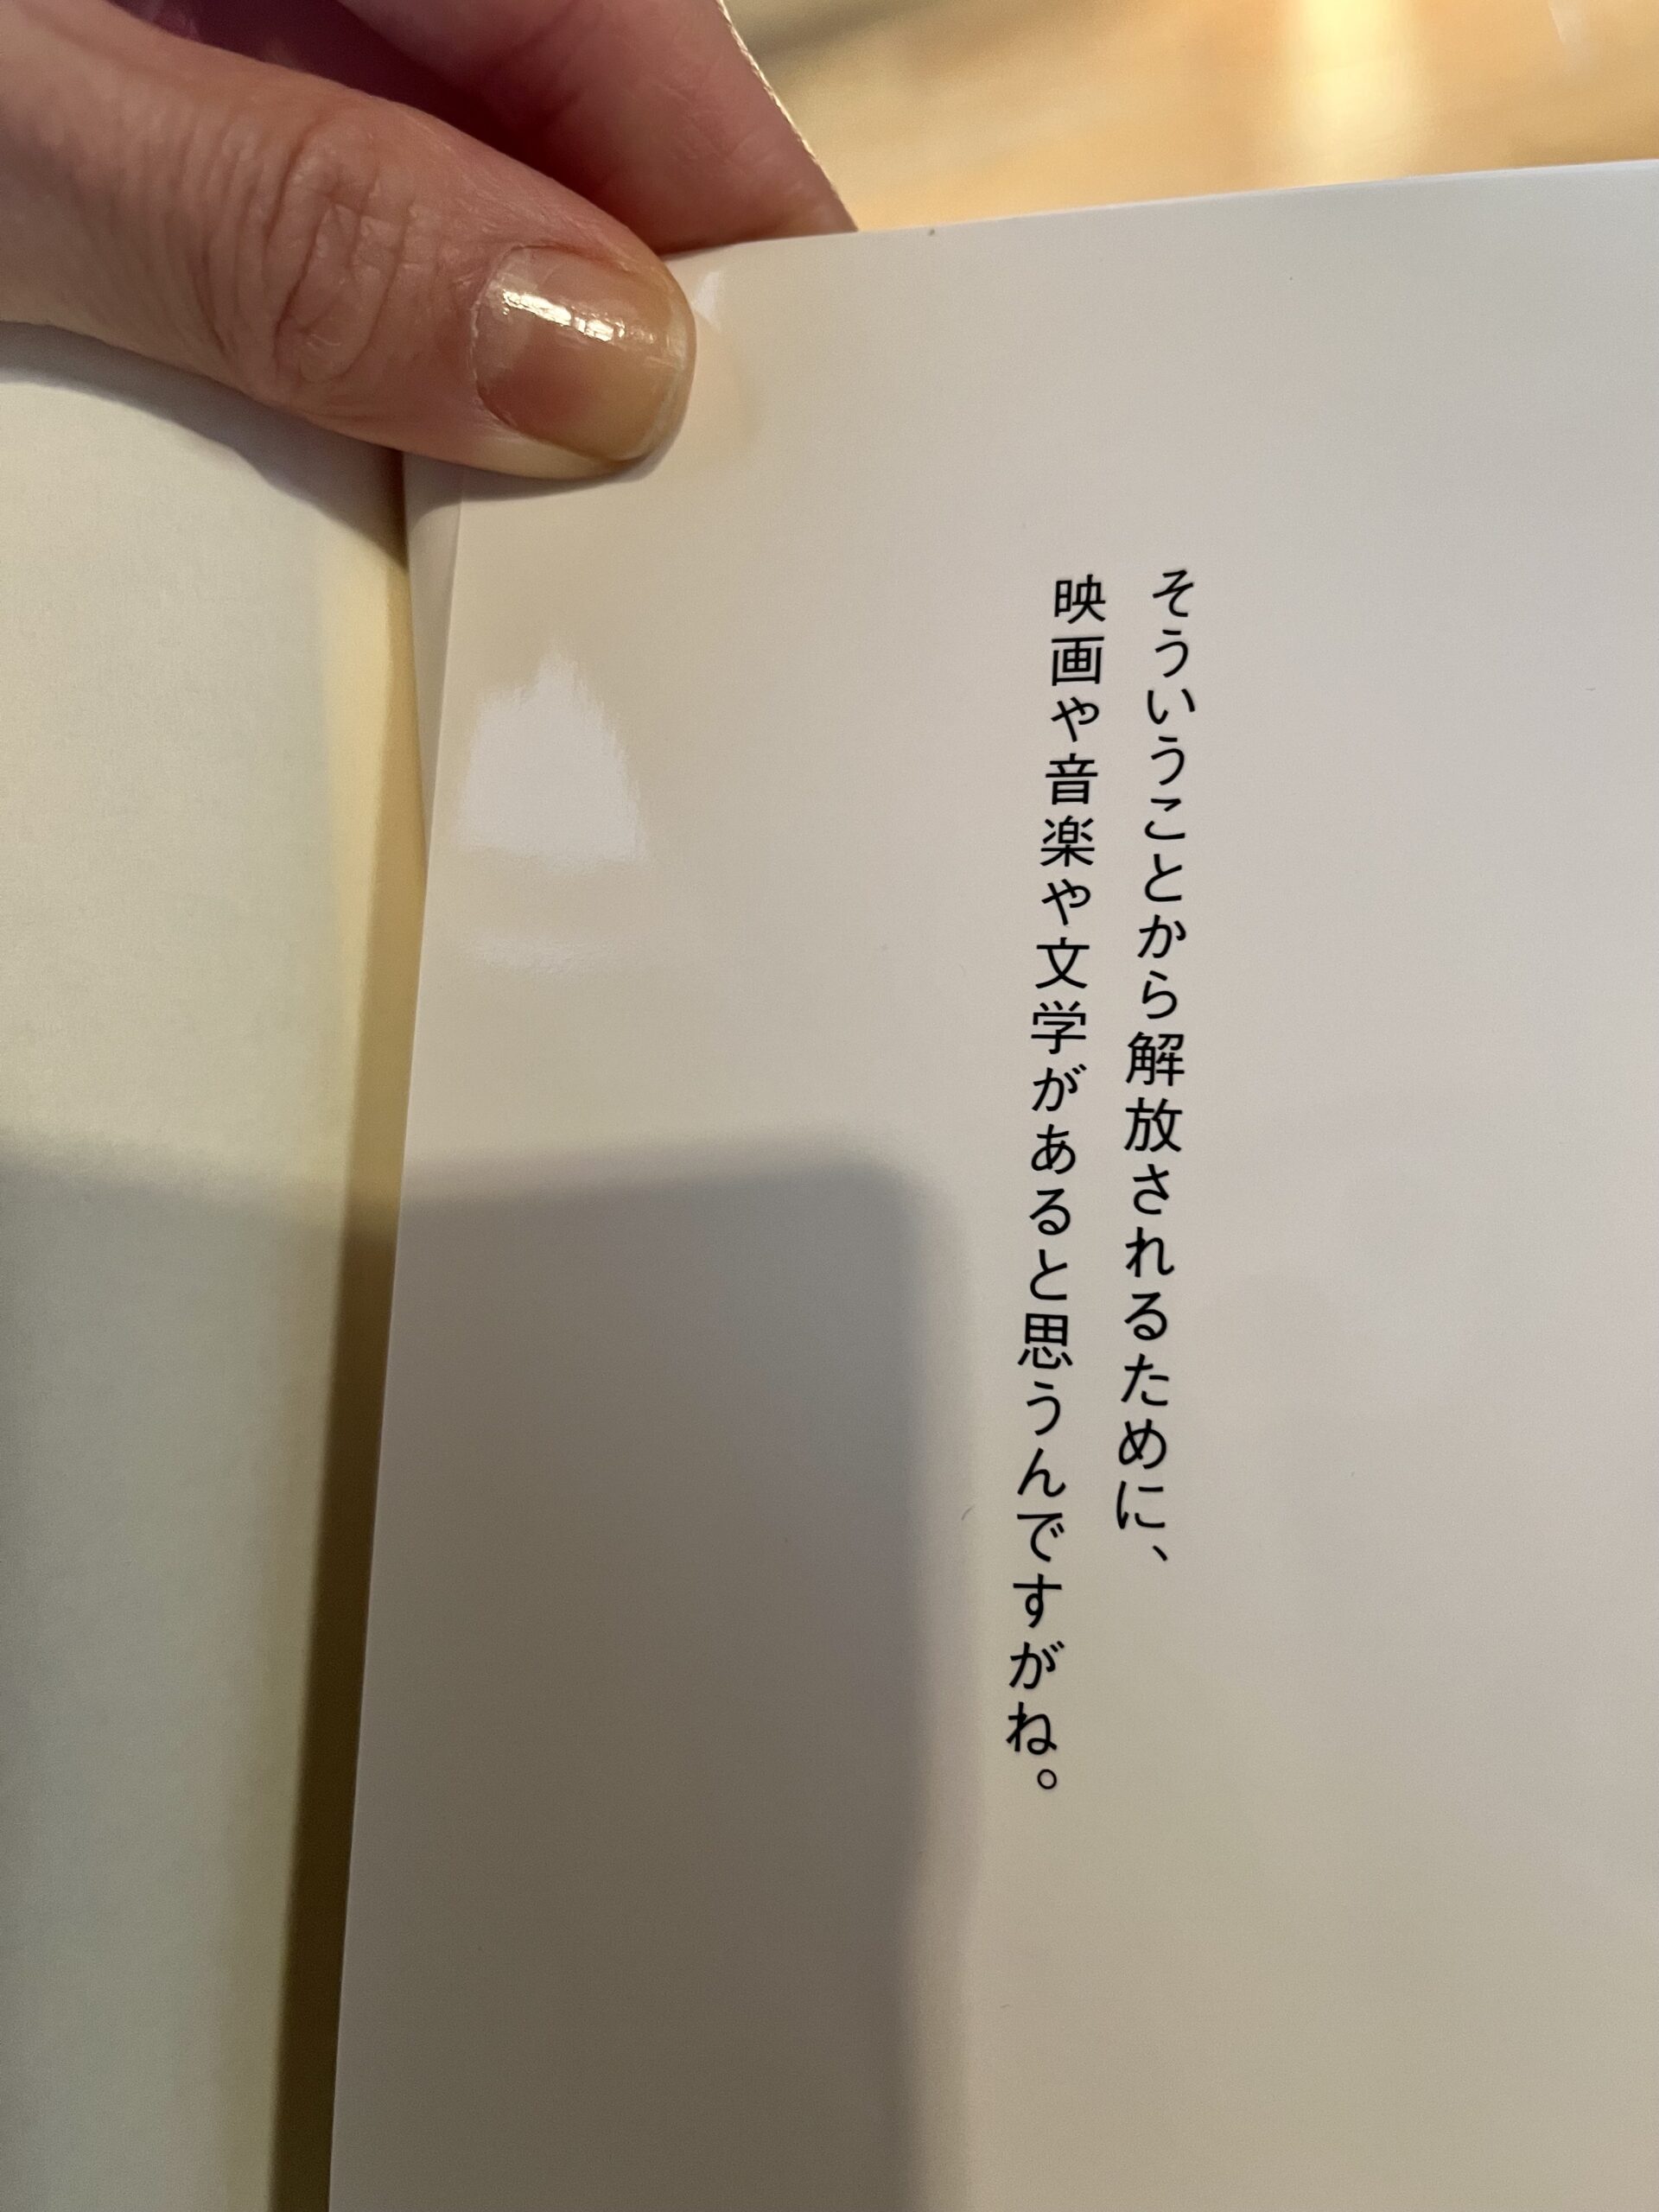 そういうことから解放されるために、
映画や音楽や文学があると思うんですがね。